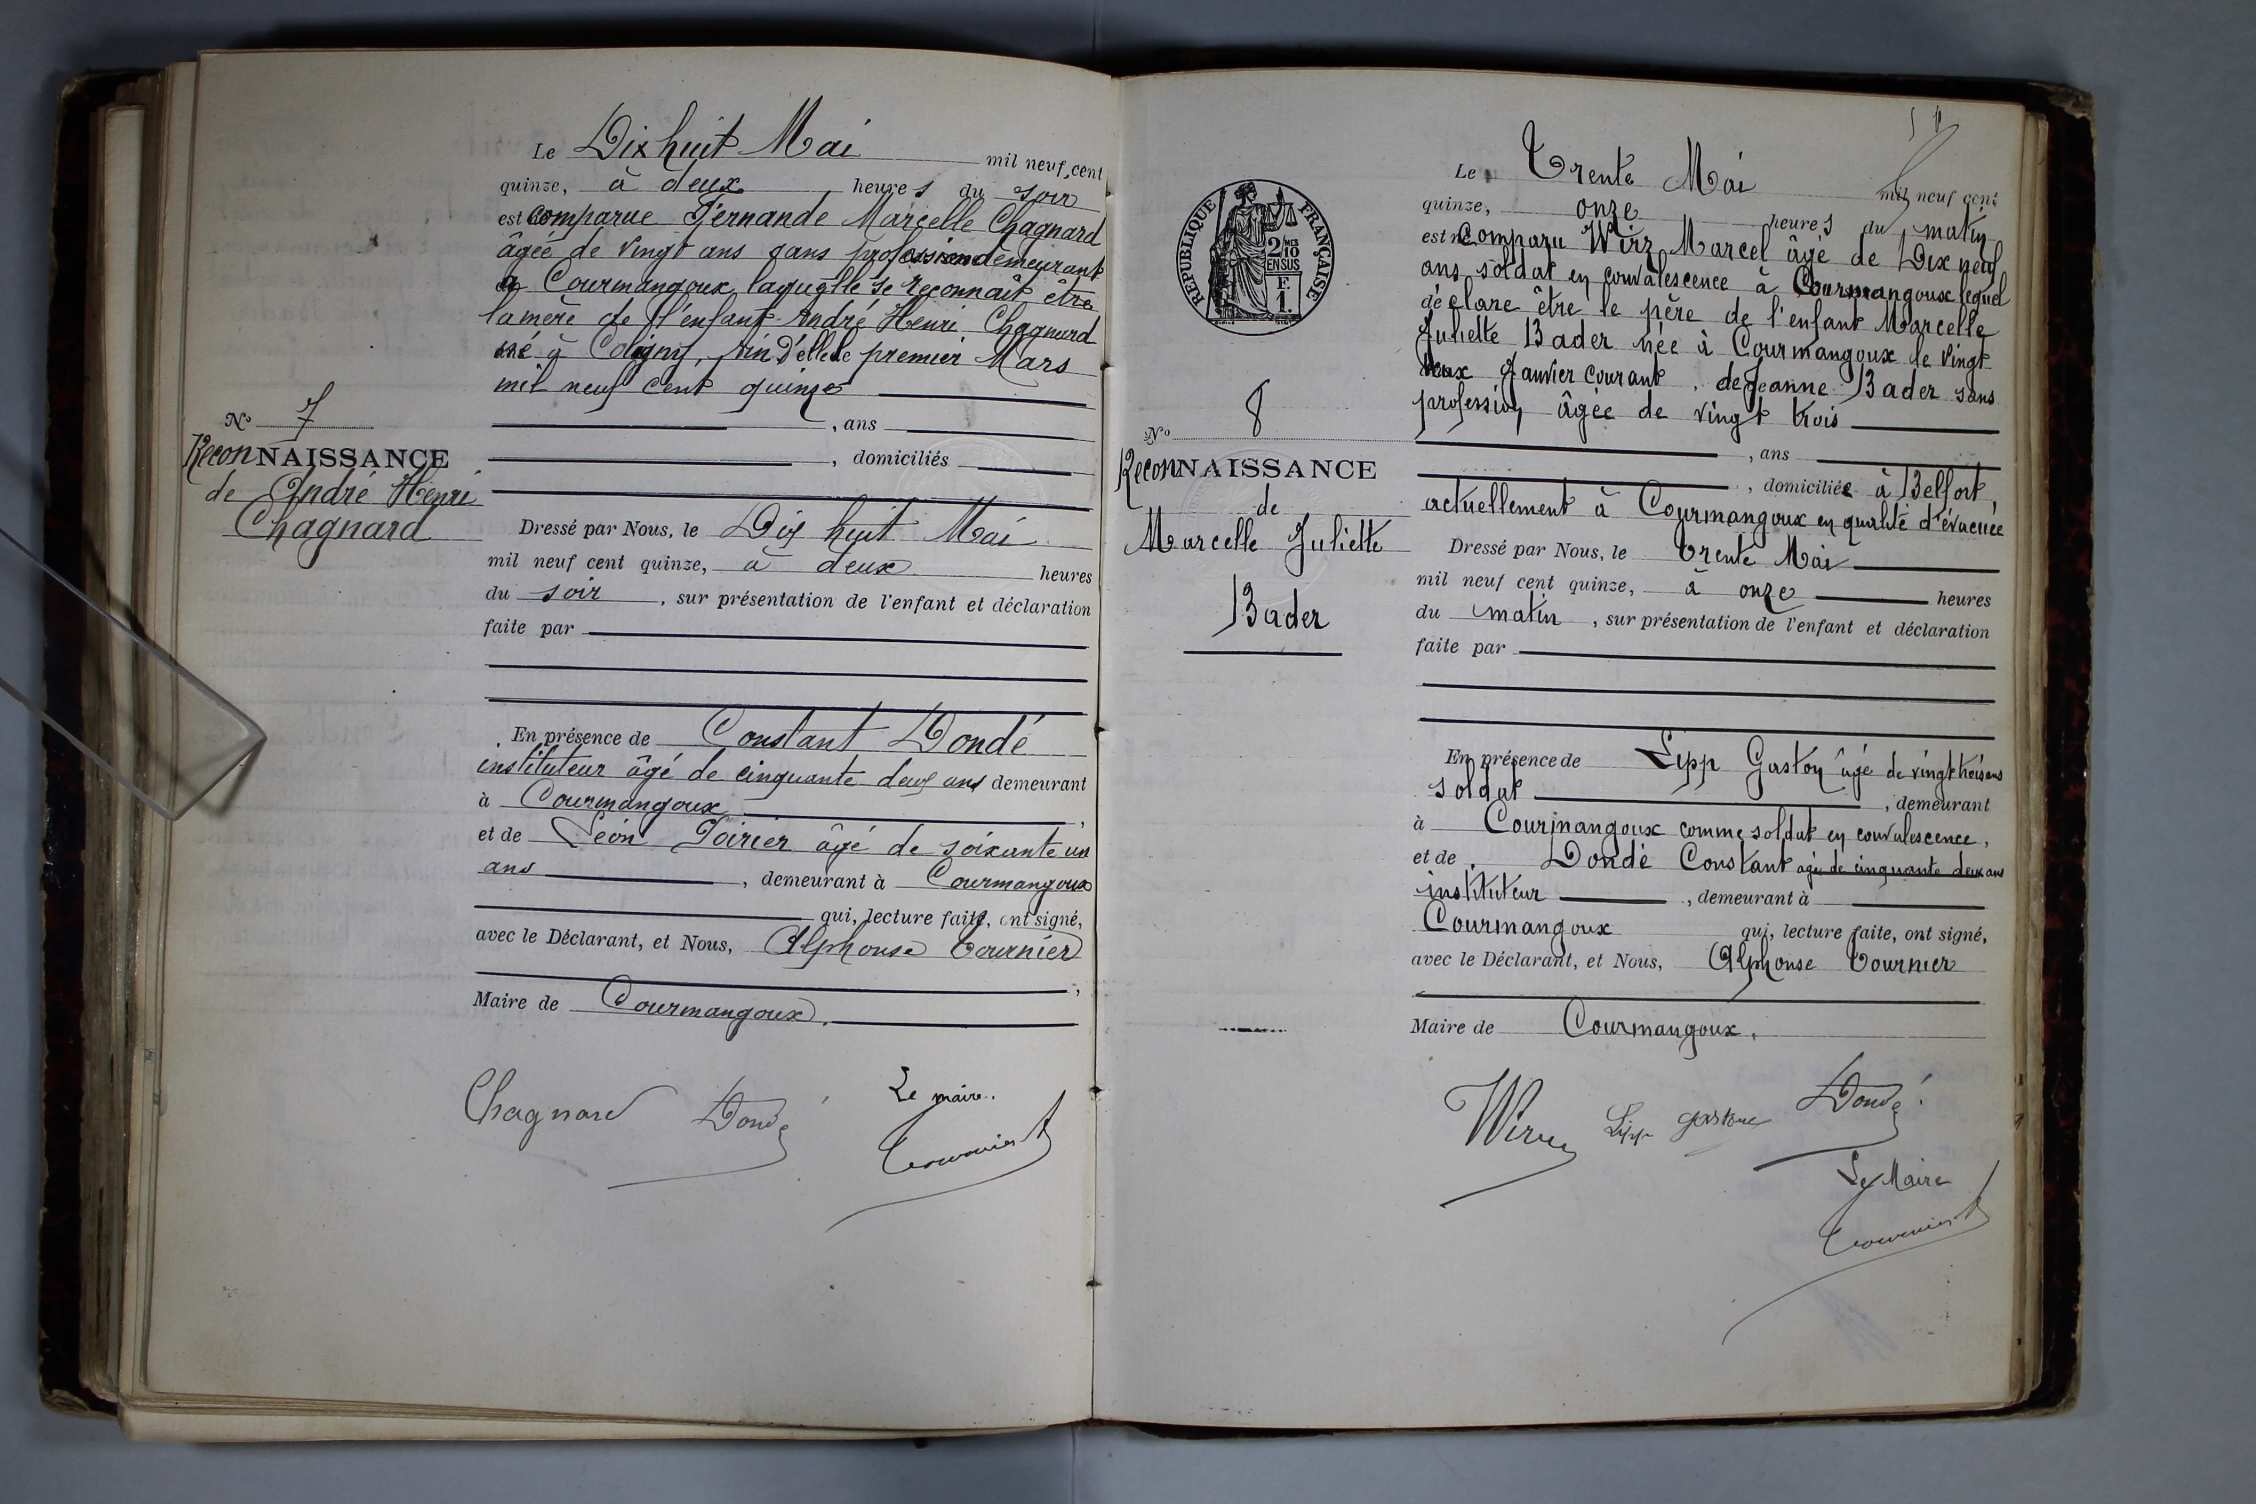 Le Dix huit Mai mil neuf cent
quinze, à deux heures du soir
est comparue Fernande Marcelle Chagnard
âgée de vingt ans sans profession demeurant
à Courmangoux, laquelle se reconnait être
la mère de l'enfant André Henri Chagnard
né à Coligny, d'elle le premier Mars
mil neuf cent quinze
, ans
, domiciliés
N° 7
ReconNAISSANCE
de André Henri
Chagnard
Dressé par Nous, le Dix huit Mai
mil neuf cent quinze, à deux heures
du soir, sur présentation de l'enfant et déclaration
faite par
En présence de Constant Dondé
instituteur âgé de cinquante deux ans demeurant
à Courmangoux,
et de Léon Poirier âgé de soixante un
ans, demeurant à Courmangoux
qui, lecture faite, ont signé,
avec le Déclarant, et Nous, Alphonse Tournier
,
Maire de Courmangoux.
Chagnard Dondé Le maire.
Tournier
RÉPUBLIQUE FRANÇAISE
2/10 MES
EN SUS
F.
1.
Le Trente Mai mil neuf cent
quinze, onze heures du matin
est né Comparu Wirz Marcel âgé de Dix neuf
ans, soldat en convalescence à Courmangoux lequel
déclare être le père de l'enfant Marcelle
Juliette Bader née à Courmangoux le vingt
deux Janvier courant, de Jeanne Bader sans
profession âgée de vingt trois
, ans
, domiciliée à Belfort,
actuellement à Courmangoux en qualité d'évacuée
N° 8
ReconNAISSANCE
de
Marcelle Juliette
Bader
Dressé par Nous, le Trente Mai
mil neuf cent quinze, à onze heures
du matin, sur présentation de l'enfant et déclaration
faite par
En présence de Lipp Gaston âgé de vingt trois ans
soldat, demeurant
à Courmangoux comme soldat en convalescence,
et de Dondé Constant âgé de cinquante deux ans
instituteur, demeurant à
Courmangoux qui, lecture faite, ont signé,
avec le Déclarant, et Nous, Alphonse Tournier
Maire de Courmangoux.
Wirz Lipp Gastone Dondé
Le Maire
Tournier